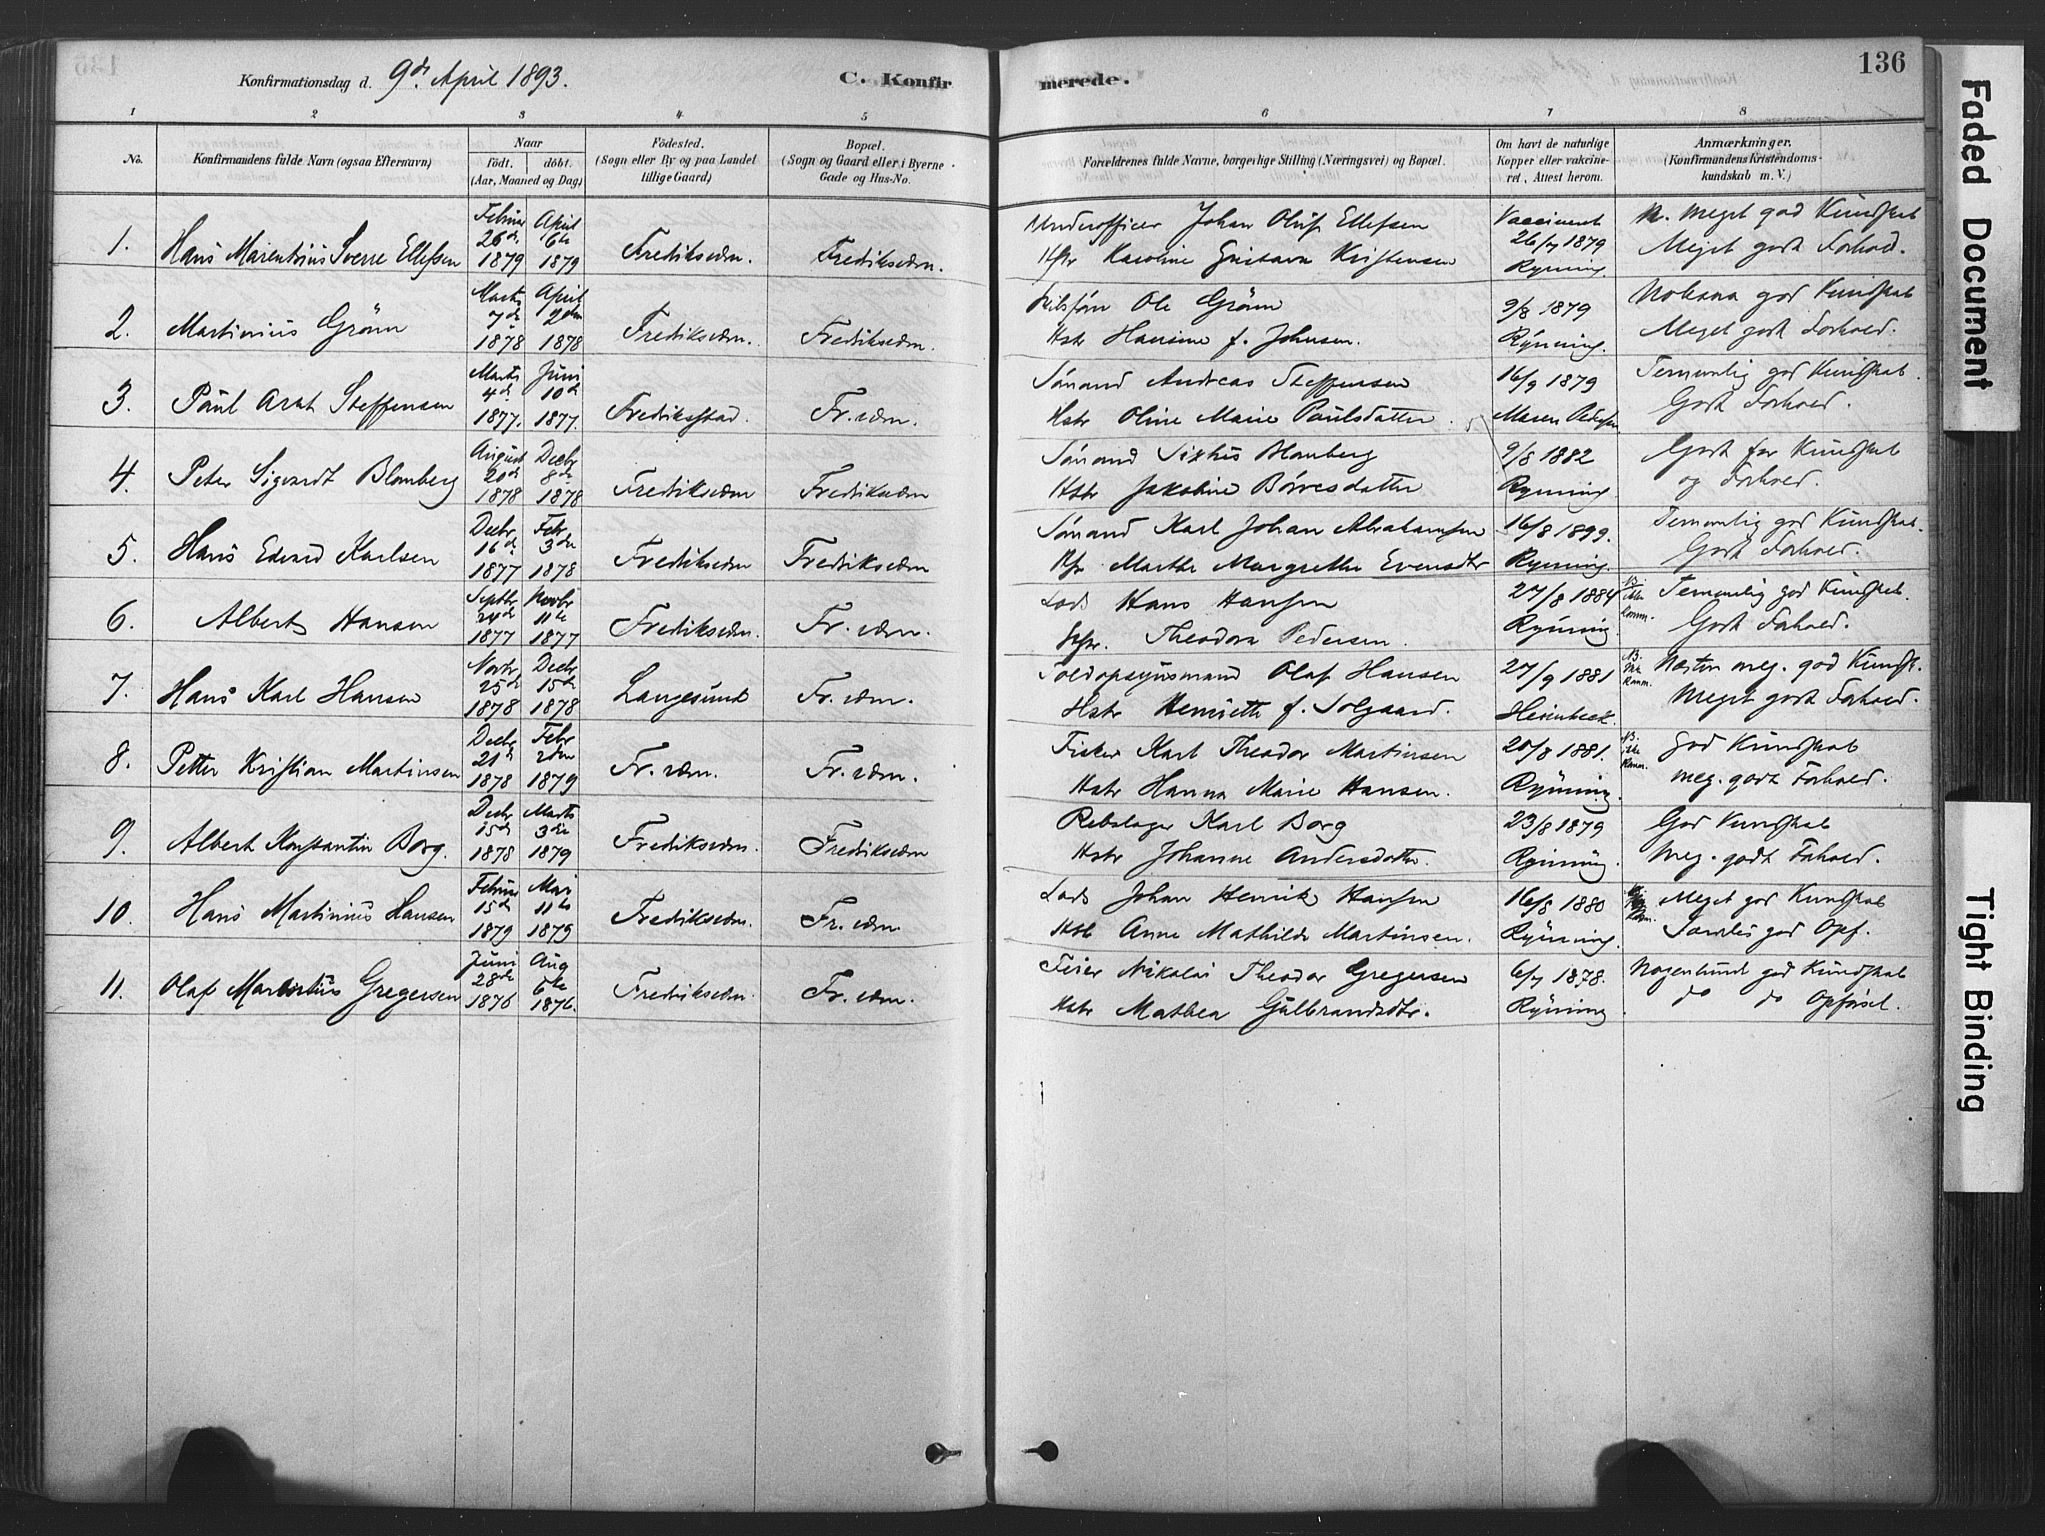 136
Konfirmationsdag d. 9de April 1893.
C. Konfirmerede.
1 2 3 4 5 6 7 8
No.
Konfirmandens fulde Navn (ogsaa Efternavn)
Naar
födt. döbt.
(Aar, Maaned og Dag)
Födested.
(Sogn eller By og paa Landet
tillige Gaard)
Bopæl.
(Sogn og Gaard eller i Byerne
Gade og Hus-No.
Forældrenes fulde Navne, borgerlige Stilling (Næringsvei) og Bopæl.
Om havt de naturlige
Kopper eller vakcine-
ret, Attest herom.
Anmærkninger.
(Konfirmandens Kristendoms-
kundskab m. V.)
1. Hans Marentius Sverre Ellefsen
Februar 26de 1879
April 6te 1879
Fredriksværn.
Fredriksværn.
Underofficer Johan Oluf Ellefsen
Hstr Karoline Gustava Kristensen
Vaccineret 26/7 1879
Ryning
M. Meget god Kundskab
Meget godt Forhold.
2. Martinius Grönn
Marts 7de 1878
April 2den 1878
Fredriksværn.
Fredriksværn.
Ole Grönn
Hstr Hansine f. Johnsen.
9/8 1879
Ryning.
god Kundskab
Meget godt Forhold.
3. Paul Arnt Steffensen
Marts 4de 1877.
Juni 10de 1877.
Fredriksstad.
Fr.værn.
Sömand Andreas Steffensen
Hstr Oline Marie Paulsdatter.
16/9 1879
Maren Pedersen
Temmelig god Kundskab.
Godt Forhold.
4. Peter Sigvardt Blomberg
August 20de 1878
Decbr 8de 1878
Fredriksværn
Fredriksværn
Sömand Sixtus Blomberg
Hstr Jakobine Börresdatter
9/8 1882
Ryning.
Godt for Kundskab
og Forhold.
5. Hans Edvard Karlsen
Decbr 16de 1877
Febr 3die 1878
Fredriksværn
Fredriksværn
Sömand Karl Johan Abrahamsen
Hstr Marthe Margrethe Evensdtr
16/8 1899.
Ryning.
Temmelig god Kundskab.
Godt Forhold.
6. Albert Hansen
Septbr 24de 1877
Novbr 11te 1877
Fredriksværn.
Fr.værn.
Lods Hans Hansen
Hstr. Theodora Pedersen.
27/8 1884
Ryning.
NB. ikke Komm.
Temmelig god Kundskab.
Godt Forhold.
7. Hans Karl Hansen
Novbr 25de 1878
Decbr 15de 1878
Langesund
Fr.værn.
Toldopsynsmand Olaf Hansen
Hstr Henriette f. Solgaard.
27/9 1881
NB. ikke Komm.
Næsten meg. god Kundsk.
Meget godt Forhold.
8. Petter Kristian Martinsen
Decbr 21de 1878
Febr 2den 1879
Fr.værn.
Fr.værn.
Fisker Karl Theodor Martinsen
Hstr Hanna Marie Hansen.
20/8 1881.
Ryning.
NB. ikke Komm.
god Kundskab
meg. godt Forhold.
9. Albert Konstantin Borg.
Decbr 15de 1878
Marts 3die 1879
Fredriksværn.
Fredriksværn
Rebslager Karl Borg
Hstr Johanne Andersdatter.
23/8 1879
Ryning.
God Kundskab
Meg. godt Forhold.
10. Hans Martinius Hansen
Februar 15de 1879
Mai 11te 1879
Fredriksværn.
Fr.værn.
Lods Johan Henrik Hansen
Hstr Anne Mathilde Martinsen.
16/8 1880
Ryning.
Komm.
Meget god Kundskab
Særdeles god Opf.
11. Olaf Marentius Gregersen
Juni 28de 1876
Aug 6te 1876.
Fredriksværn.
Fr.værn.
Feier Nikolai Theodor Gregersen
Hstr Mathea Gulbrandsdtr.
6/7 1878.
Ryning
Nogenlunde god Kundskab
do do Opförsel.
Faded Document
Tight Binding